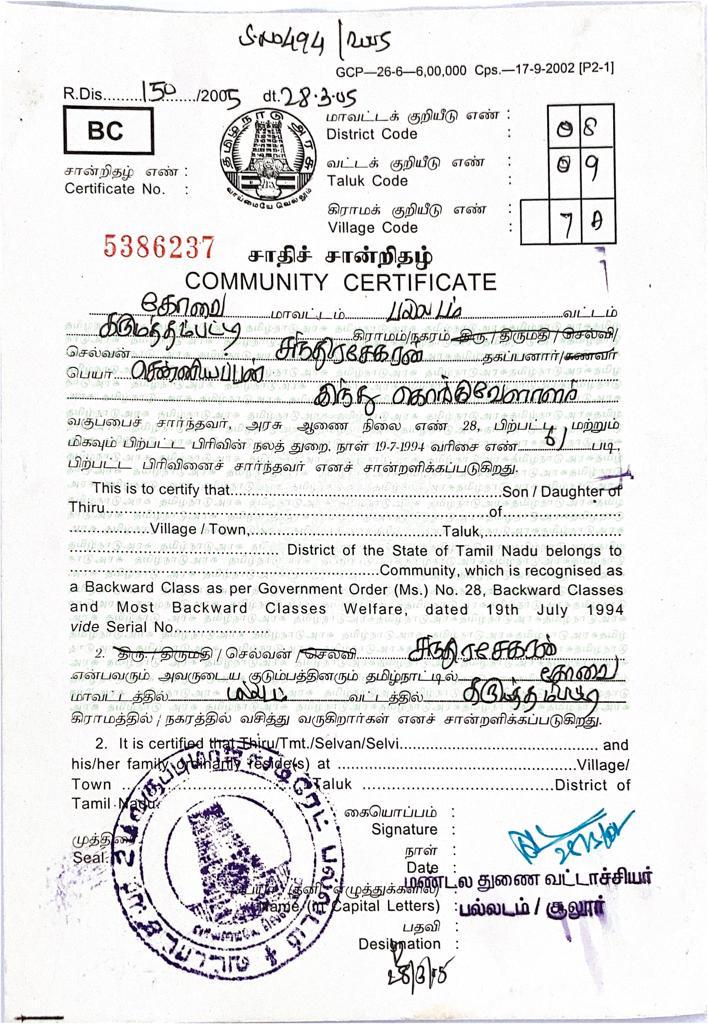 S.No 494 / 2005
GCP—26-6—6,00,000 Cps.—17-9-2002 [P2-1]
R.Dis.........150........./2005 dt.28.3.05
BC
தமிழ்நாடு அரசு
வாய்மையே வெல்லும்
மாவட்டக் குறியீடு எண் :
District Code : 08
சான்றிதழ் எண் :
Certificate No. :
வட்டக் குறியீடு எண் :
Taluk Code : 09
கிராமக் குறியீடு எண் :
Village Code : 7
5386237
சாதிச் சான்றிதழ்
COMMUNITY CERTIFICATE
கோவை மாவட்டம் பல்லடம் வட்டம்
கிராமம்/நகரம் திரு./திருமதி/செல்வி/
செல்வன் சந்திரசேகரன் தகப்பனார்/கணவர்
பெயர் சென்னியப்பன் இந்து கொங்குவேளாளர்
வகுப்பைச் சார்ந்தவர், அரசு ஆணை நிலை எண் 28, பிற்பட்ட மற்றும்
மிகவும் பிற்பட்ட பிரிவின் நலத் துறை, நாள் 19-7-1994 வரிசை எண் படி,
பிற்பட்ட பிரிவினைச் சார்ந்தவர் எனச் சான்றளிக்கப்படுகிறது.
This is to certify that..............................Son / Daughter of
Thiru..............................of..............................
....................Village / Town,....................Taluk,....................
.............................. District of the State of Tamil Nadu belongs to
..............................Community, which is recognised as
a Backward Class as per Government Order (Ms.) No. 28, Backward Classes
and Most Backward Classes Welfare, dated 19th July 1994
vide Serial No....................
2. திரு./திருமதி/செல்வன்/செல்வி சந்திரசேகரன்
என்பவரும் அவருடைய குடும்பத்தினரும் தமிழ்நாட்டில் கோவை
மாவட்டத்தில் பல்லடம் வட்டத்தில்
கிராமத்தில் / நகரத்தில் வசித்து வருகிறார்கள் எனச் சான்றளிக்கப்படுகிறது.
2. It is certified that Thiru/Tmt./Selvan/Selvi.............................. and
his/her family ordinarily reside(s) at ..............................Village/
Town ..............................Taluk ..............................District of
Tamil Nadu.
கையொப்பம் :
Signature :
முத்திரை
Seal:
நாள் :
Date :
மண்டல துணை வட்டாட்சியர்
பெயர் (தனி எழுத்துக்களில்)
Name (in Capital Letters) :
பல்லடம் / சூலூர்
பதவி
Designation :
28/3/05